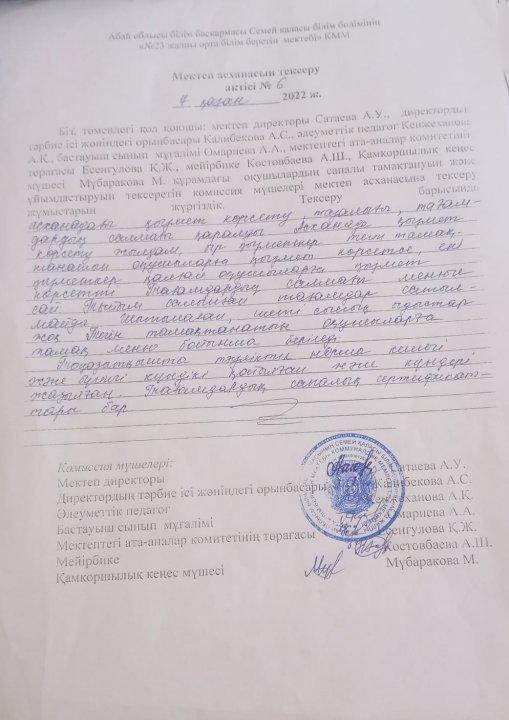 Абай облысы білім басқармасы Семей қаласы білім бөлімінің
«№23 жалпы орта білім беретін мектебі» КММ
Мектеп асханасын тексеру
актісі № 6
7 қазан 2022 ж.
Біз, төмендегі қол қоюшы: мектеп директоры Сатаева А.У., директордың
тәрбие ісі жөніндегі орынбасары Калибекова А.С., әлеуметтік педагог Кенжеханова
А.Қ., бастауыш сынып мұғалімі Омариева А.А., мектептегі ата-аналар комитетінің
төрағасы Есенгулова Қ.Ж., мейірбике Костовбаева А.Ш., Қамқоршылық кеңес
мүшесі Мубаракова М. құрамдағы оқушылардың сапалы тамақтануын және
ұйымдастыруын тексеретін комиссия мүшелері мектеп асханасына тексеру
жұмыстарын жүргіздік. Тексеру барысында
асханадағы қызмет көрсету, тазалығы, тағам-
дардың салмағы қаралды. Асханада қызмет
көрсету жақсы, бір қызметкер тегін тамақ-
танатын оқушыларға қызмет көрсетсе, екі
қызметкер қалған оқушыларға қызмет
көрсетті. Тағамдардың салмағы менюге
сай. Тыйым салынған тағамдар сатыл-
майды. Шатынаған, шеті сынық ыдыстар
жоқ. Тегін тамақтанатын оқушыларға
тамақ меню бойынша беріледі.
Тоңазытқышта тәуліктік норма кешегі
және бүгінгі күндікі қойылған және күндері
жазылған. Тағамдардың сапалық сертификат-
тары бар
Комиссия мүшелері:
Мектеп директоры Сатаева А.У.
Директордың тәрбие ісі жөніндегі орынбасары Калибекова А.С.
Әлеуметтік педагог Кенжеханова А.Қ.
Бастауыш сынып мұғалімі Омариева А.А.
Мектептегі ата-аналар комитетінің төрағасы Есенгулова Қ.Ж.
Мейірбике Костовбаева А.Ш.
Қамқоршылық кеңес мүшесі Мұбаракова М.